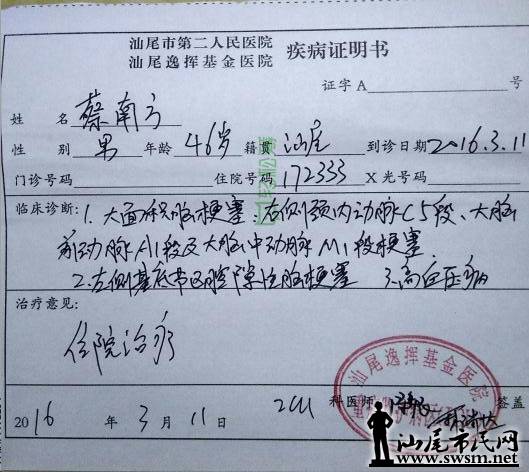 汕尾市第二人民医院
汕尾逸挥基金医院 疾病证明书
证字A 号
姓 名 蔡南方
性 别 男 年龄 46岁 籍贯 汕尾 到诊日期 2016.3.11
门诊号码 住院号码 172333 X光号码
临床诊断: 1. 大面积脑梗塞:右侧颈内动脉C5段、大脑
前动脉A1段及大脑中动脉M1段梗塞.
2.左侧基底节区腔隙性脑梗塞 3.高血压病
治疗意见:
住院治疗
汕尾逸挥基金医院
科医师 签盖
2016 年 3 月 11 日
汕尾市民网
www.swsm.net